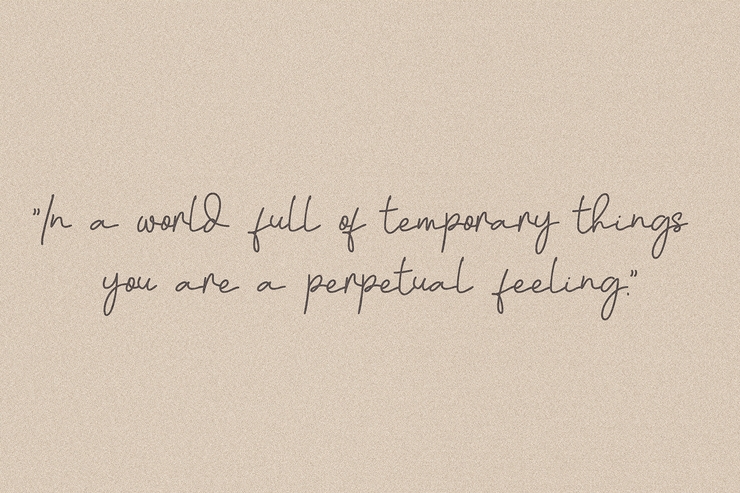 "In a world full of temporary things
you are a perpetual feeling."